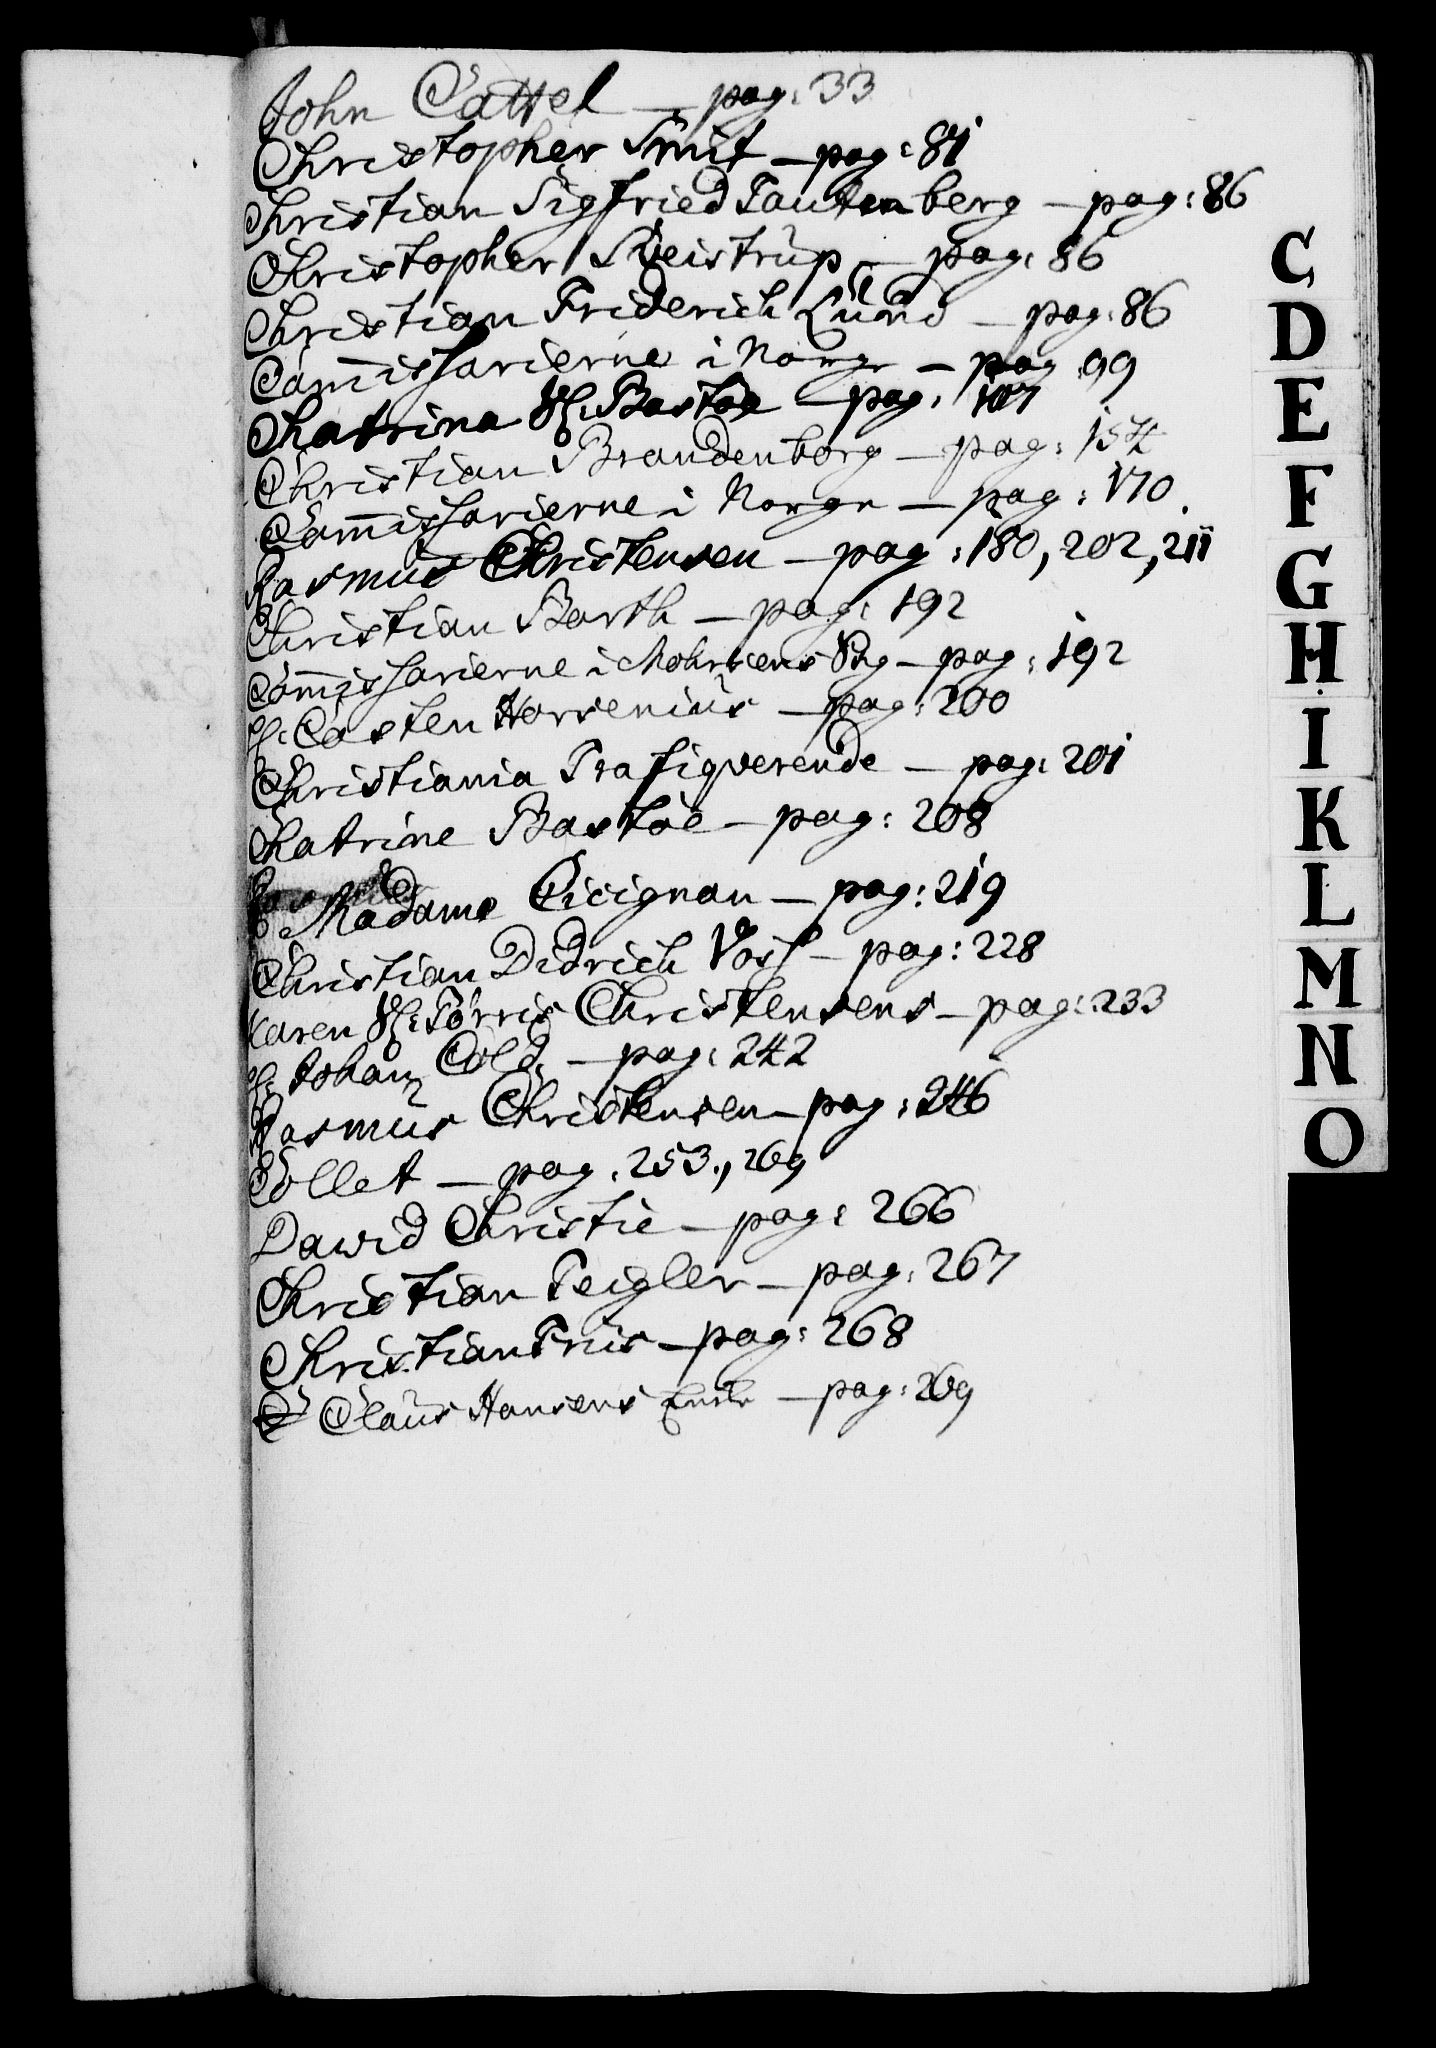 John Cattel – pag: 33
Christopher Smit – pag: 81
Christian Sigfried Tautenberg – pag: 86
Christopher Sveistrup – pag: 86
Christian Friderich Lund – pag: 86
Commissarierne i Norge – pag: 99
Chatrina Sl: Bastøe – pag: 107
Christian Brandenborg – pag: 154
Commissarierne i Norge – pag: 170
Rasmus Christensen – pag: 180, 202, 211
Christian Barth – pag: 192
Commissarierne i Mohrsens Sag – pag: 192
H: Casten Horrenius – pag: 200
Christiania Trafiqverende – pag: 201
Chatrine Bastøe – pag: 208
Madame Cicignon – pag: 219
Christian Didrich Voss – pag: 228
Karen Sl: Tørris Christensens – pag: 233
H: Johan Cold – pag: 242
Rasmus Christensen – pag: 246
Collet – pag: 253., 269
David Christie – pag: 266
Christian Teigler – pag: 267
Christian Friis – pag: 268
Claus Hansens Enke – pag: 269
C
D
E
F
G
H
I
K
L
M
N
O